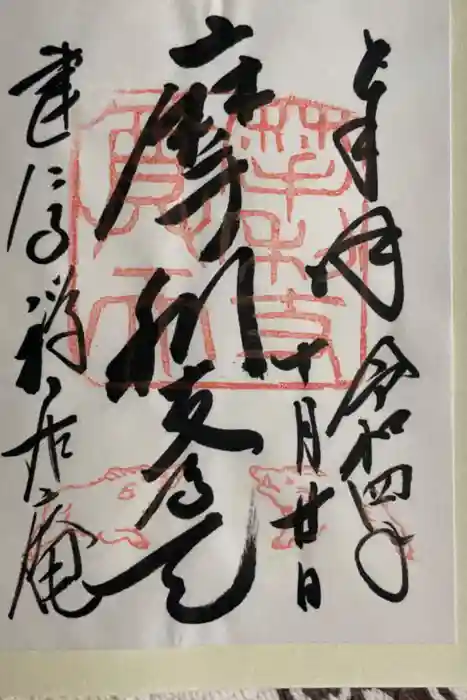 奉拝 令和四年
十月廿日
摩利支尊天
建仁寺禅居庵